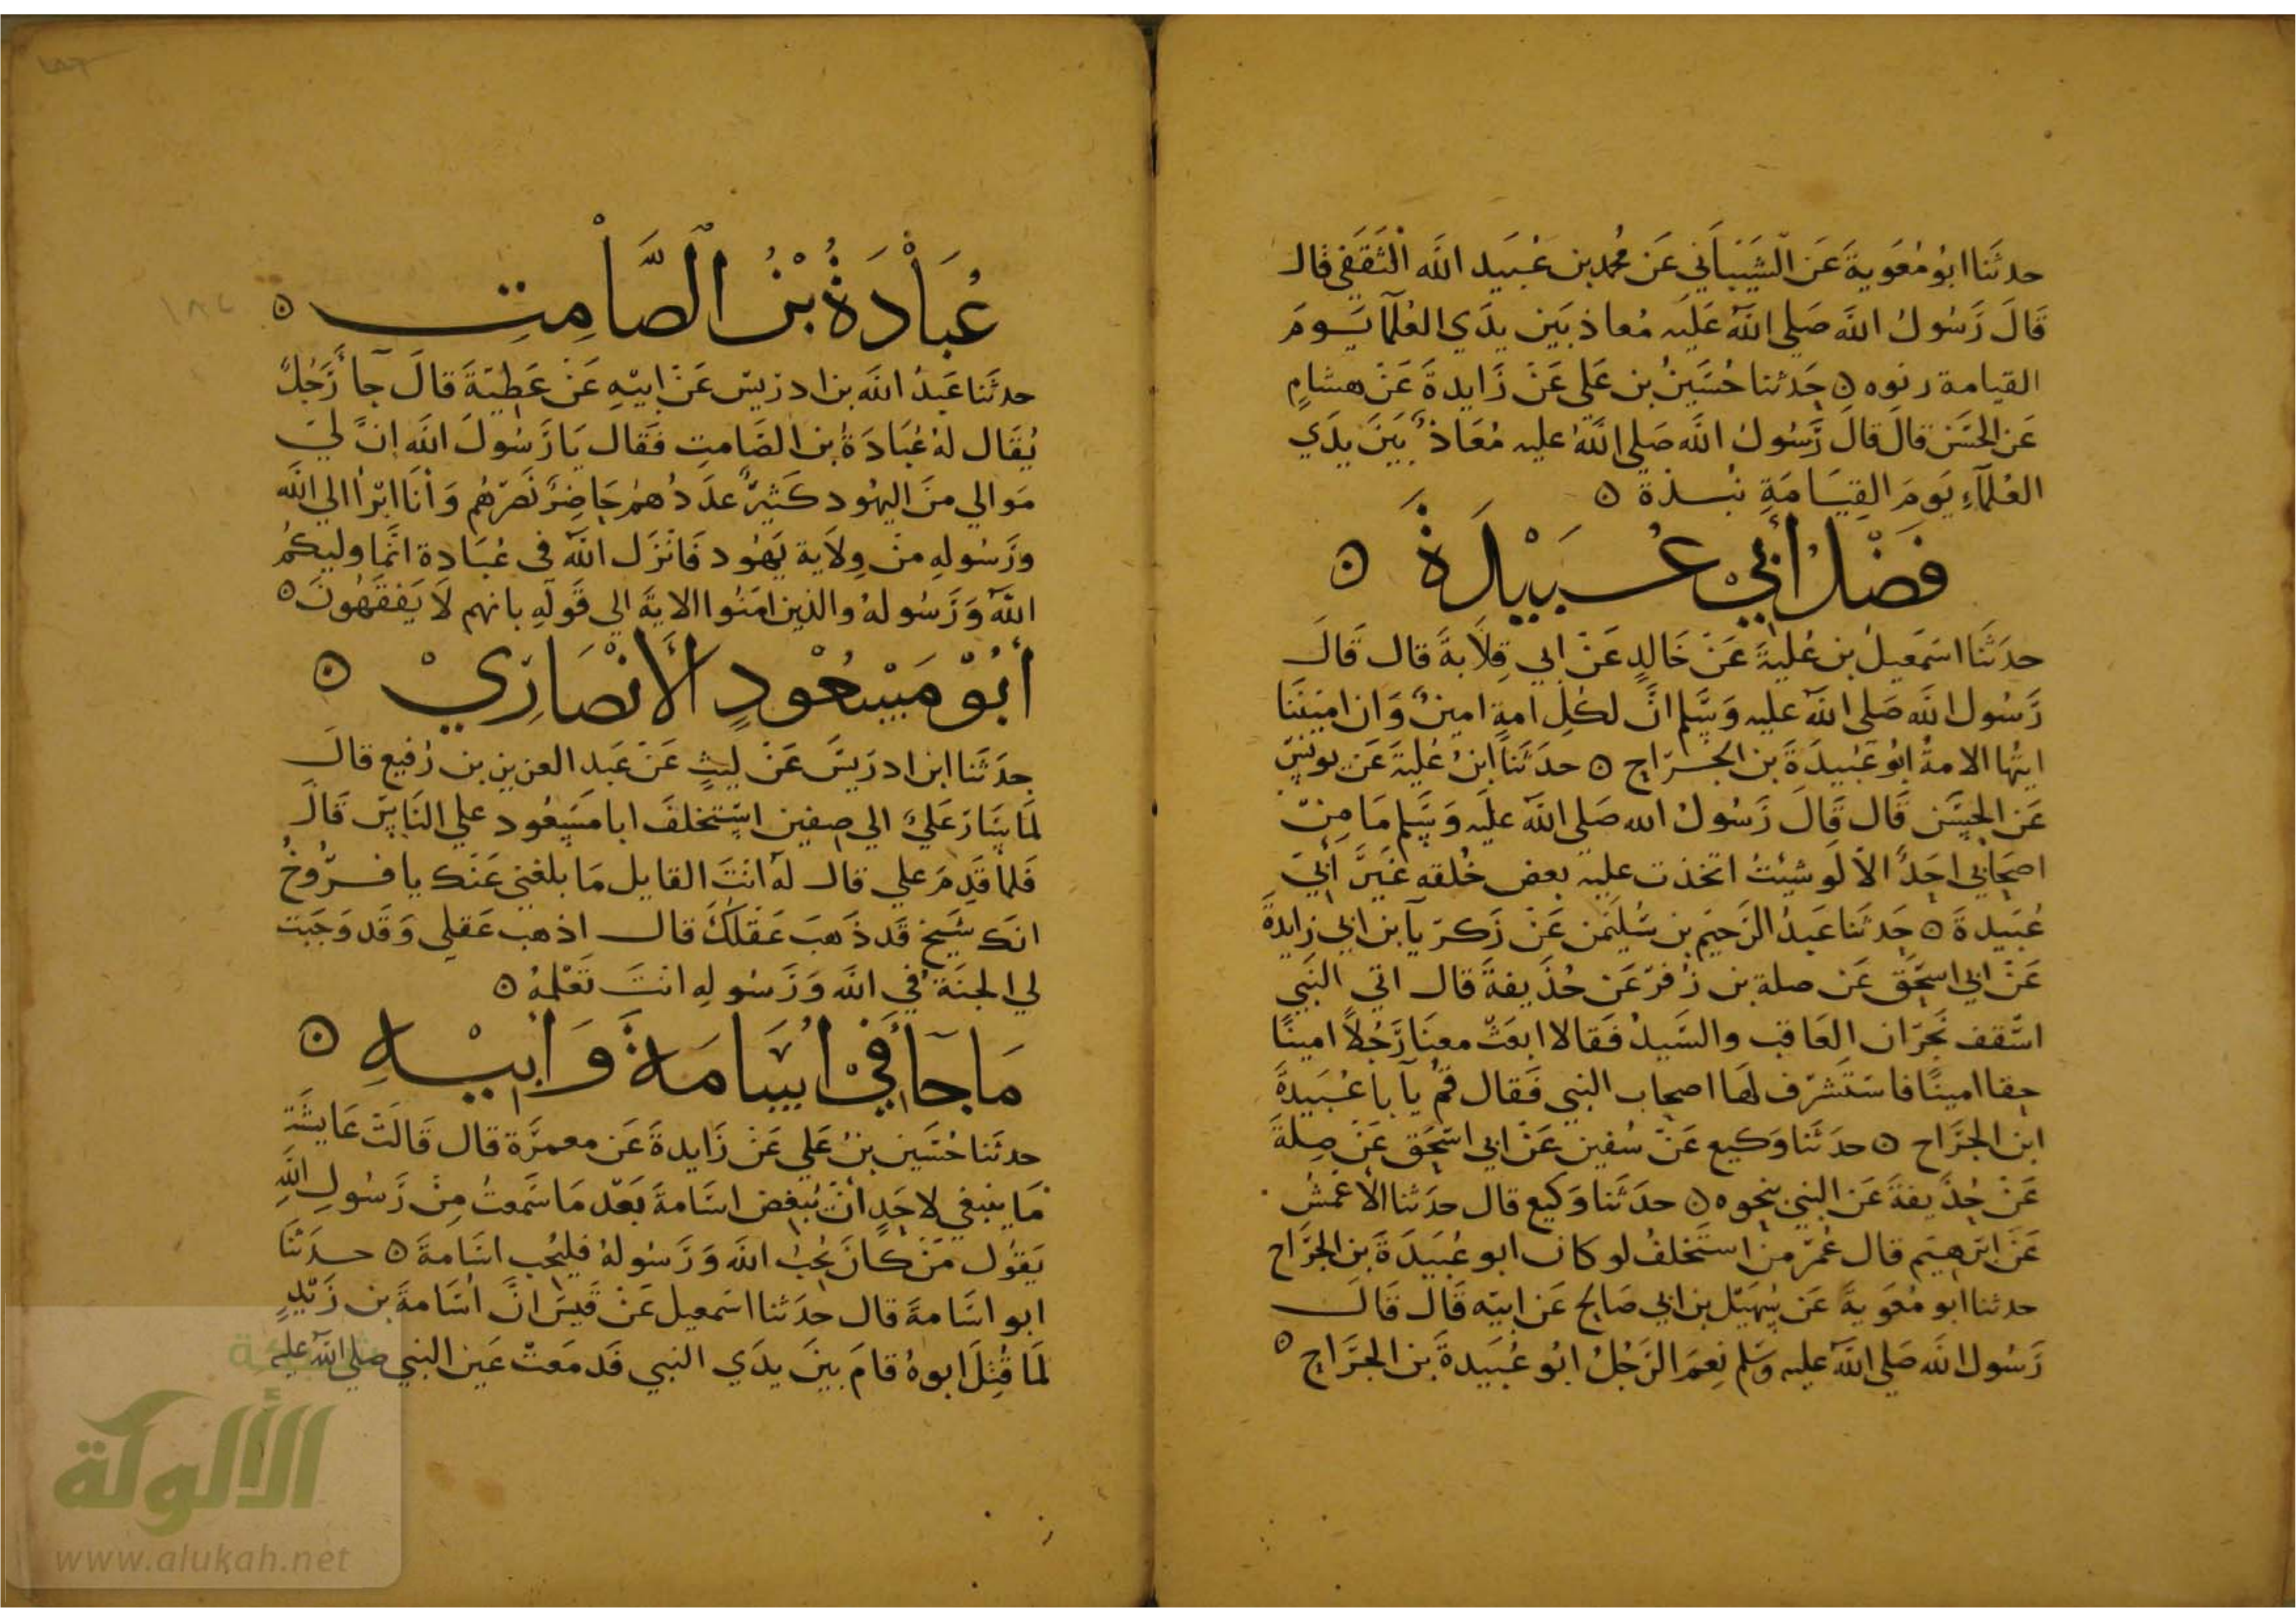 حدثنا ابو معوية عن الشيباني عن محمد بن عبيد الله الثقفي قال
قال رسول الله صلى الله عليه معاذ بين يدي العلما يوم
القيامة رتوه ٥ حدثنا حسين بن علي عن زايدة عن هشام
عن الحسن قال قال رسول الله صلى الله عليه معاذ بين يدي
العلماء يوم القيامة نبذة ٥
فضل أبي عبيدة ٥
حدثنا اسمعيل بن علية عن خالد عن ابي قلابة قال قال
رسول الله صلى الله عليه وسلم ان لكل امة امين وان اميننا
ايتها الامة ابو عبيدة بن الجراح ٥ حدثنا ابن علية عن يونس
عن الحسن قال قال رسول الله صلى الله عليه وسلم ما من
اصحابي احد الا لو شيت اتخذت عليه بعض خلقه غير أبي
عبيدة ٥ حدثنا عبد الرحيم بن سليمن عن زكريا بن ابي زايدة
عن ابي اسحق عن صلة بن زفر عن حذيفة قال اتي النبي
اسقف نجران العاقب والسيد فقالا ابعث معنا رجلا امينا
حقا امينا فاستشرف لها اصحاب النبي فقال قم يآبا عبيدة
ابن الجراح ٥ حدثنا وكيع عن سفين عن ابي اسحق عن صلة
عن حذيفة عن النبي بنحوه ٥ حدثنا وكيع قال حدثنا الأعمش
عن ابرهيم قال عمر من استخلف لو كان ابو عبيدة بن الجراح
حدثنا ابو معوية عن سهيل بن ابي صالح عن ابيه قال قال
رسول الله صلى الله عليه وسلم نعم الرجل ابو عبيدة بن الجراح ٥
عبادة بن الصامت ٥
حدثنا عبد الله بن ادريس عن ابيه عن عطية قال جآ رجل
يقال له عبادة بن الصامت فقال يا رسول الله ان لي
موالي من اليهود كثير عددهم حاضر نصرهم وأنا ابرأ الي الله
ورسوله من ولاية يهود فانزل الله في عبادة انما وليكم
الله ورسوله والذين امنوا الاية الي قوله بانهم لا يفقهون ٥
أبو مسعود الأنصاري ٥
حدثنا ابن ادريس عن ليث عن عبد العزيز بن رفيع قال
لما سار علي الي صفين استخلف ابا مسعود علي الناس قال
فلما قدم علي قال له انت القايل ما بلغني عنك يا فروخ
انك شيخ قد ذهب عقلك قال اذهب عقلي وقد وجبت
لي الجنة في الله ورسوله انت تعلمه ٥
ما جآ في اسامة وابيه ٥
حدثنا حسين بن علي عن زايدة عن معمرة قال قالت عايشة
ما ينبغي لاحد ان يبغض اسامة بعد ما سمعت من رسول الله
يقول من كان يحب الله ورسوله فليحب اسامة ٥ حدثنا
ابو اسامة قال حدثنا اسمعيل عن قيس ان اسامة بن زيد
لما قتل ابوه قام بين يدي النبي فدمعت عين النبي صلى الله عليه
شبكة
الألوكة
www.alukah.net